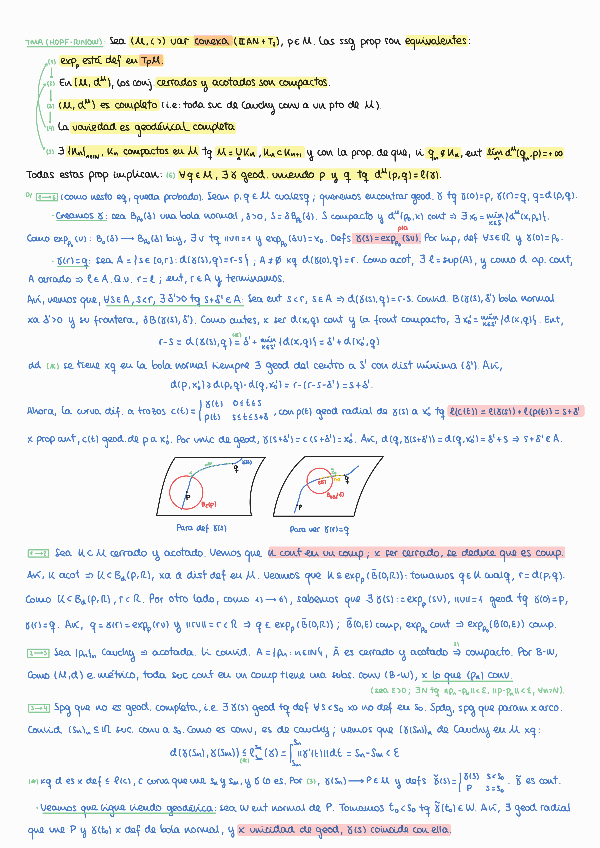 TMA (HOPF-RINOW): Sea (M,⟨⟩) var conexa (IIAN+T₂), p∈M. Las ssg prop son equivalentes:
(1) exp_p está def en T_pM.
(2) En (M,d^M), los conj cerrados y acotados son compactos.
(3) (M,d^M) es completo (i.e: toda suc de Cauchy conv a un pto de M).
(4) La variedad es geodésica/ completa
(5) ∃ {K_n}_{n∈ℕ}, K_n compactos en M tq M=∪K_n, K_n⊂K_{n+1} y con la prop de que, si q_n∉K_n, ent lim d^M(q_n,p)=+∞
Todas estas prop implican: (6) ∀q∈M, ∃ γ geod. uniendo p y q tq d^M(p,q)=ℓ(γ).
D/ 1→6 (como nesto eq, queda probado). Sean p,q∈M cualesq; queremos encontrar geod. γ tq γ(0)=p, γ(r)=q, q=d(p,q).
· Creamos γ: sea B_{p₀}(δ) una bola normal, δ>0, S=∂B_{p₀}(δ). S compacto y d^M(p₀,x) cont ⇒ ∃ x₀=min_{x∈S}{d^M(x,p₀)}.
Como exp_{p₀}(v): B₀(δ)→B_{p₀}(δ) biy, ∃ v tq ||v||=1 y exp_{p₀}(δv)=x₀. Defs γ(s)=exp_{p₀}(sv). Por hip, def ∀s∈ℝ y γ(0)=p₀.
· γ(r)=q: sea A={s∈[0,r]: d(γ(s),q)=r-s}; A≠∅ xq d(γ(0),q)=r. Como acot, ∃ ℓ=sup(A), y como d ap. cont,
A cerrado ⇒ ℓ∈A. Q.v. r=ℓ; ent, r∈A y terminamos.
Así, vemos que, ∀s∈A, s<r, ∃ δ'>0 tq s+δ'∈A: Sea ent s<r, s∈A ⇒ d(γ(s),q)=r-s. Consid. B(γ(s),δ') bola normal
xa δ'>0 y su frontera, ∂B(γ(s),δ'). Como antes, x ser d(x,q) cont y la front compacto, ∃ x₀'=min_{x∈S'}{d(x,q)}. Ent,
r-s = d(γ(s),q) =(*) δ'+min_{x∈S'}{d(x,q)} = δ'+d(x₀',q)
dd (*) se tiene xq en la bola normal siempre ∃ geod del centro a S' con dist mínima (δ'). Así,
d(p,x₀') ≥ d(p,q)-d(q,x₀') = r-(r-s-δ') = s+δ'.
Ahora, la curva dif. a trozos c(t)={γ(t) 0≤t≤s
p(t) s≤t≤s+δ', con p(t) geod radial de γ(s) a x₀' tq ℓ(c(t))=ℓ(γ(s))+ℓ(p(t))=s+δ'
x prop ant, c(t) geod. de p a x₀'. Por unic de geod, γ(s+δ')=c(s+δ')=x₀'. Así, d(q,γ(s+δ'))=d(q,x₀')=δ'+s ⇒ s+δ'∈A.
Para def γ(s)
Para ver γ(r)=q
1→2 Sea K⊂M cerrado y acotado. Vemos que K cont en un comp; x ser cerrado, se deduce que es comp.
Así, K acot ⇒ K⊂B_d(p,R), xa d dist def en M. Veamos que K⊆exp_p(B̄(0,R)): tomamos q∈K cualq, r=d(p,q).
Como K⊂B_d(p,R), r<R. Por otro lado, como 1)→6), sabemos que ∃ γ(s):=exp_p(sv), ||v||=1 geod tq γ(0)=p,
γ(r)=q. Así, q=γ(r)=exp_p(rv) y ||rv||=r<R ⇒ q∈exp_p(B̄(0,R)); B̄(0,R) comp, exp_{p₀} cont ⇒ exp_{p₀}(B̄(0,R)) comp.
2→3 Sea {p_n}_n Cauchy ⇒ acotada. Si consid. A={p_n: n∈ℕ}, Ā es cerrado y acotado ⇒ compacto. Por B-W,
Como (M,d) e. métrico, toda suc cont en un comp tiene una subs. conv (B-W), x lo que (p_n) conv.
3→4 Spg que no es geod. completa, i.e. ∃ γ(s) geod tq def ∀s<s₀ xo no def en s₀. Spdg, spg que param x arco.
Consid. (s_n)_n⊆ℝ suc. conv a s₀. Como es conv, es de cauchy; vemos que (γ(s_n))_n de Cauchy en M xq:
d(γ(s_n),γ(s_m)) ≤(*) ℓ_{s_m}^{s_n}(γ) = ∫_{s_m}^{s_n} ||γ'(t)||dt = s_n-s_m < ε
(*) xq d es x def ≤ ℓ(c), c curva que une s_n y s_m, y γ lo es. Por (3), γ(s_n)→P∈M y defs γ̃(s)={γ(s) s<s₀
P s=s₀. γ̃ es cont.
· Veamos que sigue siendo geodésica: sea W ent normal de P. Tomamos t₀<s₀ tq γ̃(t₀)∈W. Así, ∃ geod radial
que une P y γ(t₀) x def de bola normal, y x unicidad de geod, γ(s) coincide con ella.